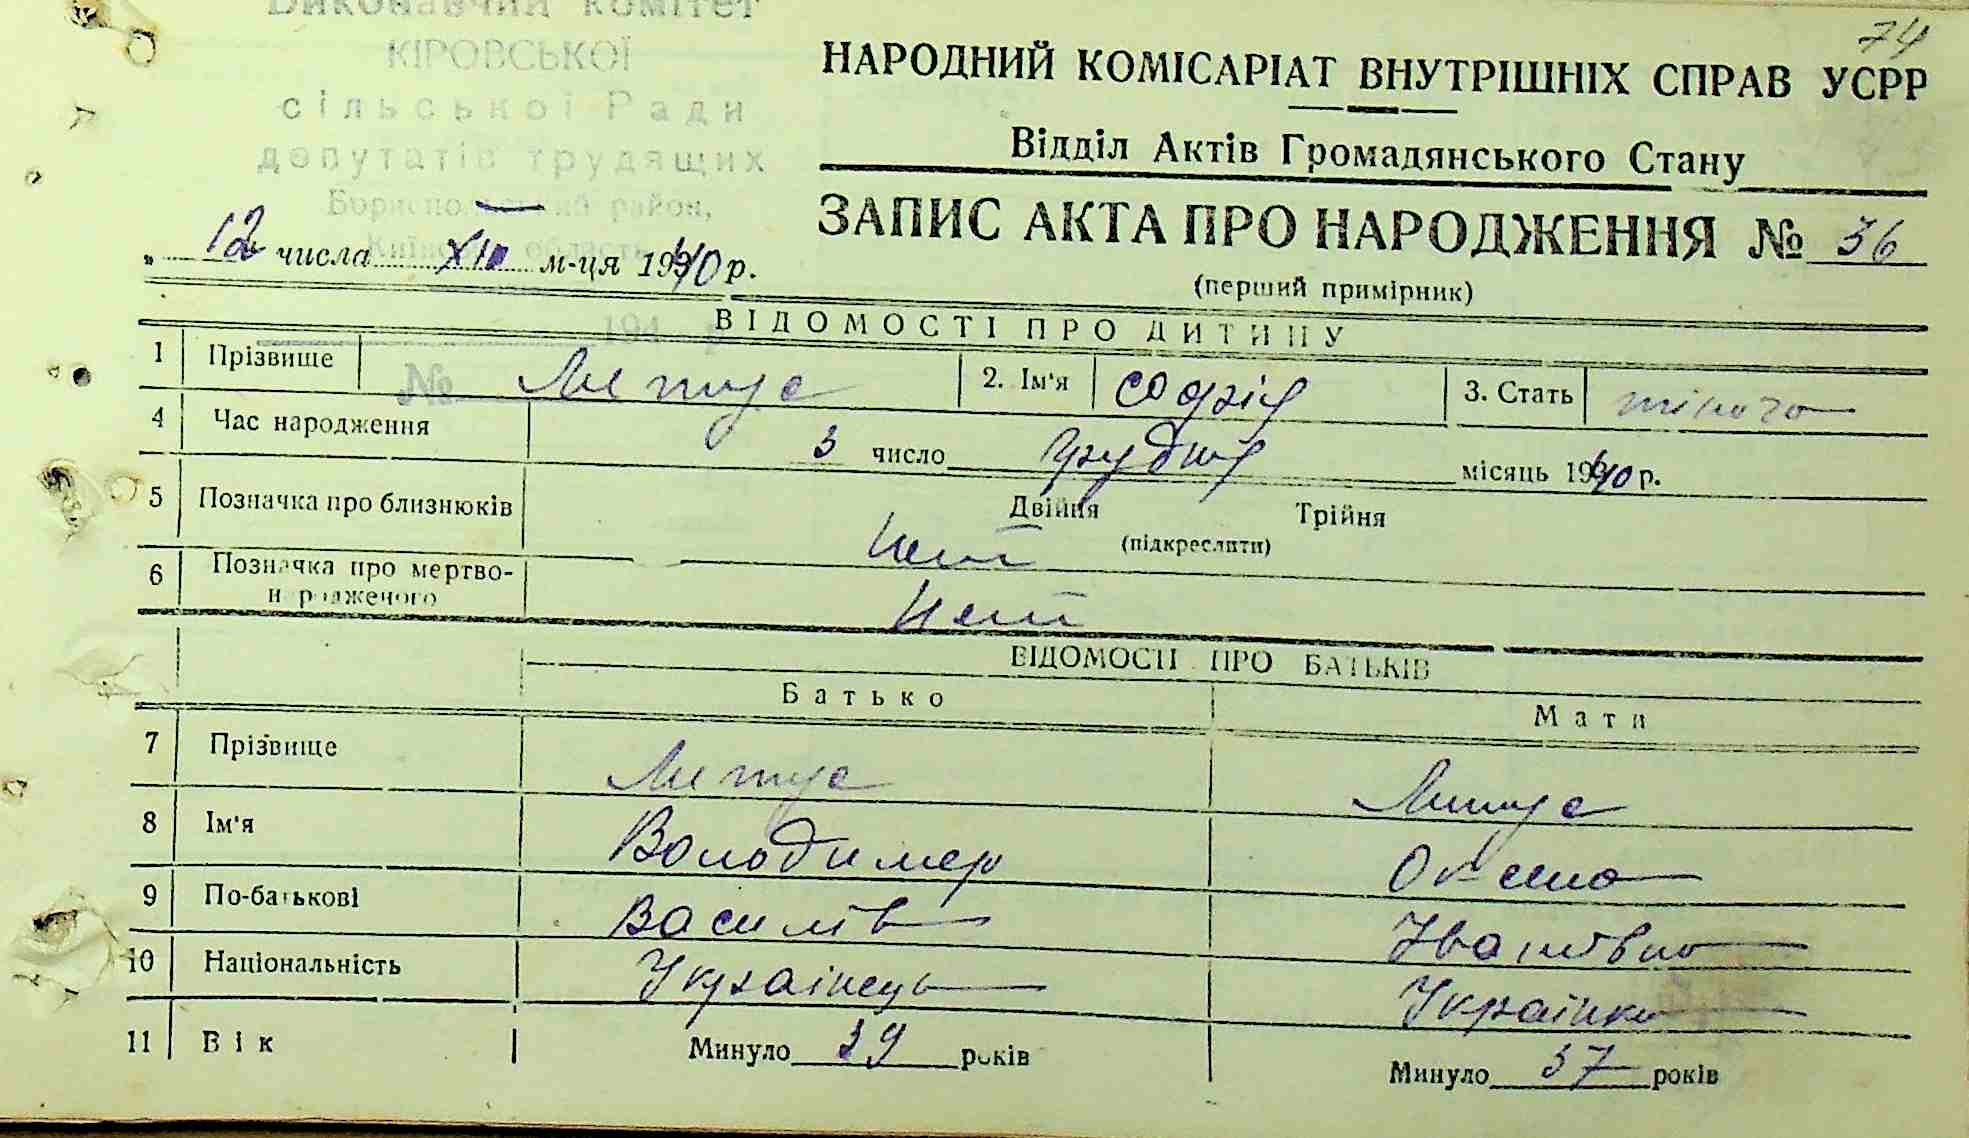 74
Виконавчий комітет
КІРОВСЬКОЇ
сільської Ради
депутатів трудящих
Бориспольський район,
Київська область
194 р
№
НАРОДНИЙ КОМІСАРІАТ ВНУТРІШНІХ СПРАВ УСРР
Відділ Актів Громадянського Стану
ЗАПИС АКТА ПРО НАРОДЖЕННЯ № 36
(перший примірник)
„ 12 числа XII м-ця 1940 р.
ВІДОМОСТІ ПРО ДИТИНУ
1 Прізвище 2. Ім'я 3. Стать
4 Час народження 3 число грудня місяць 1940 р.
5 Позначка про близнюків Двійня Трійня
(підкреслити)
нет
6 Позначка про мертво-
народженого нет
ВІДОМОСТІ ПРО БАТЬКІВ
Батько Мати
7 Прізвище
8 Ім'я Володимер
9 По-батькові Василів Іванівна
10 Національність Українець Українка
11 Вік Минуло 39 років Минуло 37 років